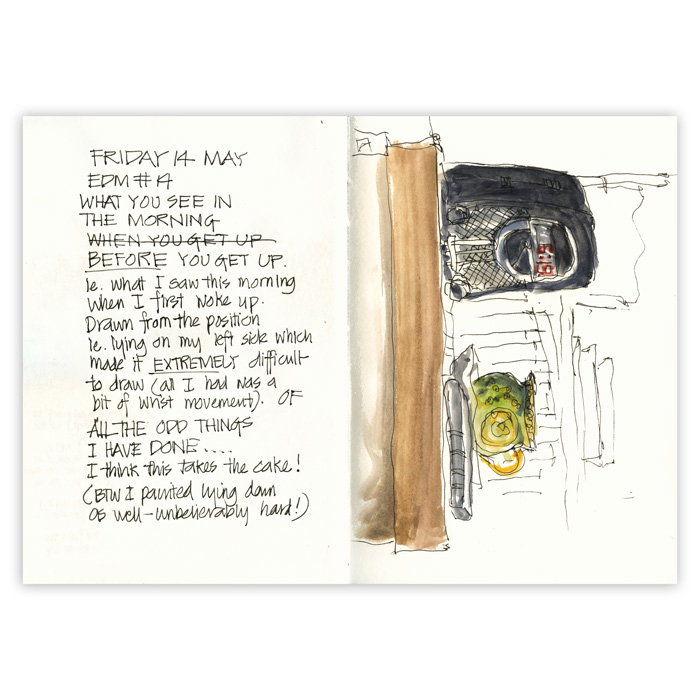 FRIDAY 14 MAY
EDM #14
WHAT YOU SEE IN
THE MORNING
WHEN YOU GET UP
BEFORE YOU GET UP.
Ie. what I saw this morning
when I first woke up.
Drawn from the position
Ie. lying on my left side which
made it EXTREMELY difficult
to draw (all I had was a
bit of wrist movement). OF
ALL THE ODD THINGS
I HAVE DONE....
I think this takes the cake!
(BTW I painted lying down
as well - unbelievably hard!)